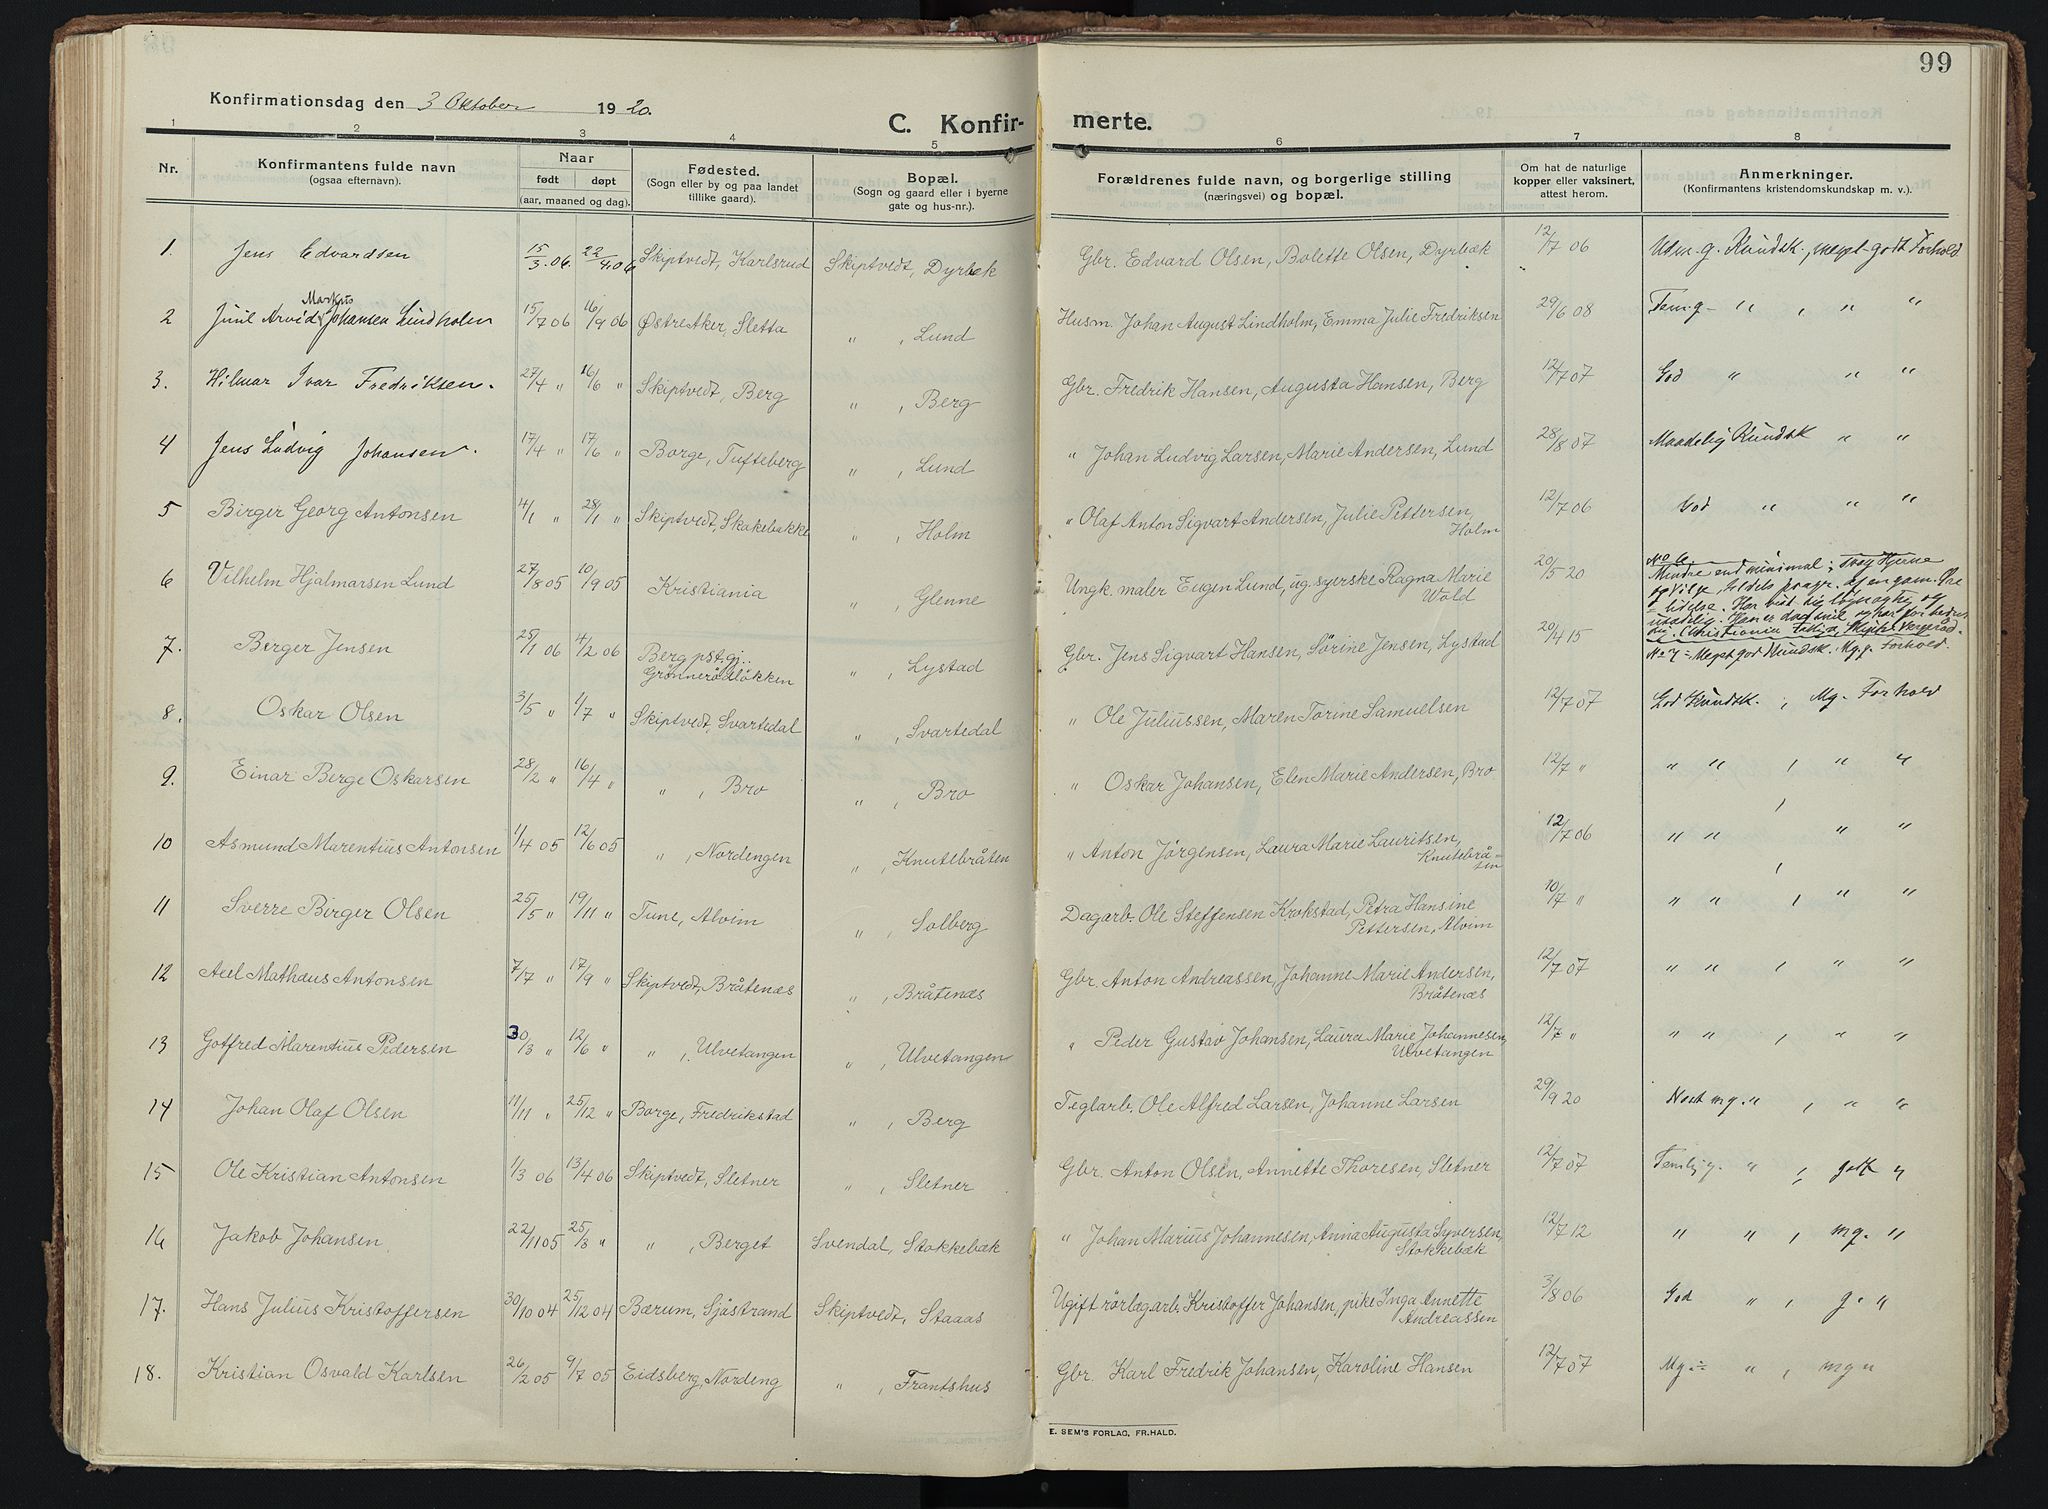 99
Konfirmationsdag den 3 Oktober 1920.
C. Konfirmerte.
1 2 3 4 5 6 7 8
Nr. Konfirmantens fulde navn (ogsaa efternavn). Naar født døpt (aar, maaned og dag). Fødested. (Sogn eller by og paa landet tillike gaard). Bopæl. (Sogn og gaard eller i byerne gate og hus-nr.). Forældrenes fulde navn, og borgerlige stilling (næringsvei) og bopæl. Om hat de naturlige kopper eller vaksinert, attest herom. Anmerkninger. (Konfirmantens kristendomskundskap m. v.).
1. Jens Edvardsen 15/3 06. 22/4 06 Skiptvedt, Karlsrud Skiptvedt, Dyrbæk Gbr. Edvard Olsen, Bolette Olsen, Dyrbæk 12/7 06 g. Kundsk., megt godt Forhold
2 Juul Arvid Markus Johansen Lindholm 15/7 06 16/9 06 Østre Aker, Sletta " , Lund Husm. Johan August Lindholm, Emma Julie Fredriksen 29/6 08 Tem. g - " , " "
3. Hilmar Ivar Fredriksen. 27/4 " 16/6 " Skiptvedt, Berg " , Berg Gbr. Fredrik Hansen, Augusta Hansen, Berg 12/7 07 God " " "
4 Jens Ludvig Johansen. 17/4 " 17/6 " Borge, Tufteberg " , Lund " Johan Ludvig Larsen, Marie Andersen, Lund 28/8 07 Maadelig Kundsk " "
5 Birger Georg Antonsen 4/1 " 28/1 " Skiptvedt, Skakebakke " , Holm " Olaf Anton Sigvart Andersen, Julie Pettersen, Holm 12/7 06 God " " "
6 Vilhelm Hjalmarsen Lund 27/8 05 10/9 05 Kristiania " , Glenne Ungk. maler Eugen Lund, ug. syerske Ragna Marie Wold 20/5 20 No 6
Mindre end minimal; Svag Hjerne
7. Berger Jensen 25/1 06 4/2 06 Berg pst.gj.. Grønnerødløkken " , Lystad Gbr. Jens Sigvart Hansen, Sørine Jensen, Lystad 20/4 15 No 7 = Megt god Kundsk. Mg. g. Forhold.
8. Oskar Olsen 3/5 " 1/7 " Skiptvedt, Svartedal " , Svartedal " Ole Juliussen, Maren Torine Samuelsen 12/7 07 God Kundsk. , Mg. Forhold
9. Einar Berge Oskarsen 28/2 " 16/4 " " , Bro " , Bro " Oskar Johansen, Elen Marie Andersen, Bro 12/7 " " " , " "
10 Asmund Marentius Antonsen 1/4 05 12/6 05 " , Nordengen " , Knutebråten " Anton Jørgensen, Laura Marie Lauritsen, Knutebråten 12/7 06 " " , " "
11 Sverre Birger Olsen 25/5 " 19/11 " Tune, Alvim " , Solberg Dagarb. Ole Steffensen Krokstad, Petra Hansine Pettersen, Alvim 10/7 " " " , " "
12 Axel Mathæus Antonsen 7/7 " 17/9 " Skiptvedt, Bråtenæs " , Bråtenæs Gbr. Anton Andreassen, Johanne Marie Andersen, Bråtenæs 12/7 07 " " , " "
13 Gotfred Marentius Pedersen 30/3 " 12/6 " " , Ulvetangen " , Ulvetangen " Peder Gustav Johansen, Laura Marie Johannesen, Ulvetangen 12/7 " " " , " "
14 Johan Olaf Olsen 11/11 " 25/12 " Borge, Fredrikstad " , Berg Teglarb. Ole Alfred Larsen, Johanne Larsen 29/9 20 mg. " , " "
15 Ole Kristian Antonsen 1/3 06 13/4 06 Skiptvedt, Sletner " , Sletner Gbr. Anton Olsen, Annette Thoresen, Sletner 12/7 07 Temlig g. " , godt "
16 Jakob Johansen 22/11 05 25/3 " " , Berget Svendal, Stokkebæk " Johan Marius Johannesen, Anna Augusta Syversen, Stokkebæk 12/7 12 " " , mg. "
17. Hans Julius Kristoffersen 30/10 04 25/12 04 Bærum, Sjøstrand Skiptvedt, Staaas Ugift rørlægarb. Kristoffer Johansen, pike Inga Annette Andreassen 3/8 06 God " , g. "
18. Kristian Osvald Karlsen 26/2 05 9/7 05 Eidsberg, Nordeng " , Frantshus Gbr. Karl Fredrik Johansen, Karoline Hansen 12/7 07 Mg. " , mg "
E. SEM'S FORLAG, FR.HALD.